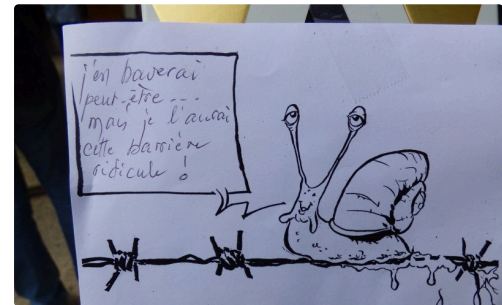 j'en baverai
peut-être ...
mais je l'aurai
cette barrière
ridicule !